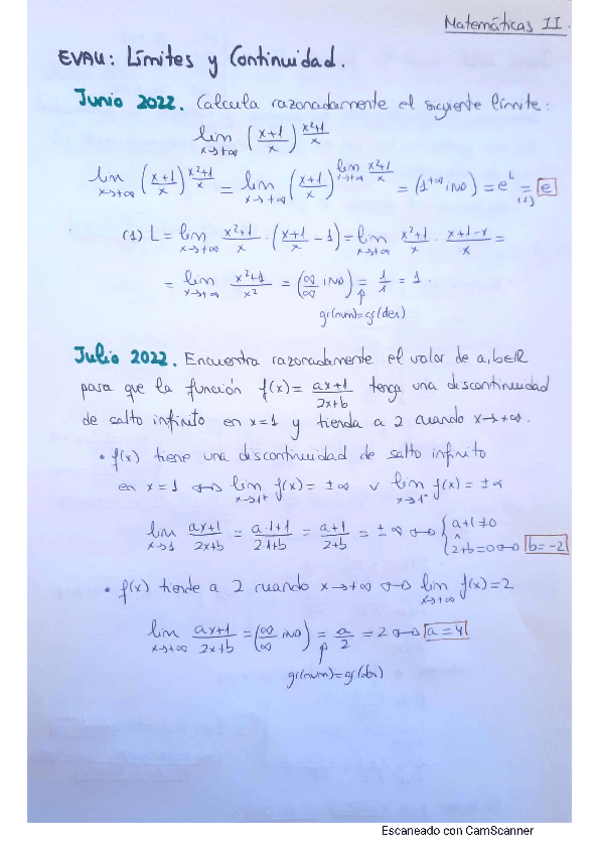 Matemáticas II.
EVAU: Límites y Continuidad.
Junio 2022. Calcula razonadamente el siguiente límite:
lim x→+∞ ((x+1)/x)^((x²+1)/x)
lim x→+∞ ((x+1)/x)^((x²+1)/x) = lim x→+∞ ((x+1)/x)^(lim x→+∞ (x²+1)/x) = (1^(+∞) IND) = e^L =(1) e
(1) L = lim x→+∞ (x²+1)/x · ((x+1)/x - 1) = lim x→+∞ (x²+1)/x · (x+1-x)/x =
= lim x→+∞ (x²+1)/x² = (∞/∞ IND) = 1/1 = 1.
gr(num)=gr(den)
Julio 2022. Encuentra razonadamente el valor de a,b∈R
para que la función f(x)= (ax+1)/(2x+b) tenga una discontinuidad
de salto infinito en x=1 y tienda a 2 cuando x→+∞.
• f(x) tiene una discontinuidad de salto infinito
en x=1 ⇔ lim x→1⁺ f(x)=±∞ ∨ lim x→1⁻ f(x)=±∞
lim x→1 (ax+1)/(2x+b) = (a·1+1)/(2·1+b) = (a+1)/(2+b) = ±∞ ⇔ { a+1≠0 ∧ 2+b=0 ⇔ b=-2
• f(x) tiende a 2 cuando x→+∞ ⇔ lim x→+∞ f(x)=2
lim x→+∞ (ax+1)/(2x+b) = (∞/∞ IND) = a/2 = 2 ⇔ a=4
gr(num)=gr(den)
Escaneado con CamScanner